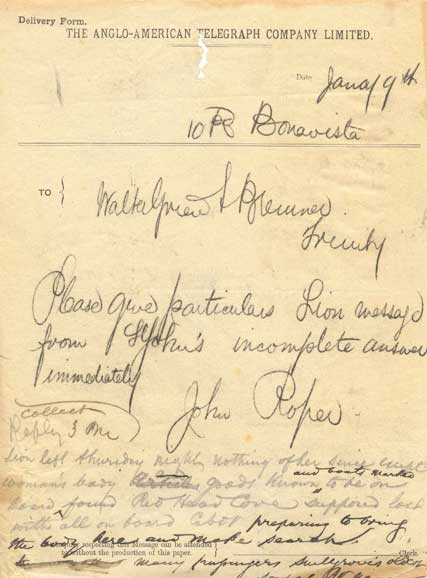 Delivery Form.
THE ANGLO-AMERICAN TELEGRAPH COMPANY LIMITED.
Date
Janay 9th
10 Bonavista
TO }
Walter & Bremner
Trinity
Please give particulars Lion message
from St John's incomplete answer
immediately
John Roper
collect
Reply 3 Pm
Lion left thursday night nothing of her since except
womans body goods known to be on
and boats marked
board found Red Head Cove supposed lost
with all on board Cabot preparing to bring
the body here and make search.
respecting this Message can be attended
to without the production of this paper.
Clerk
many